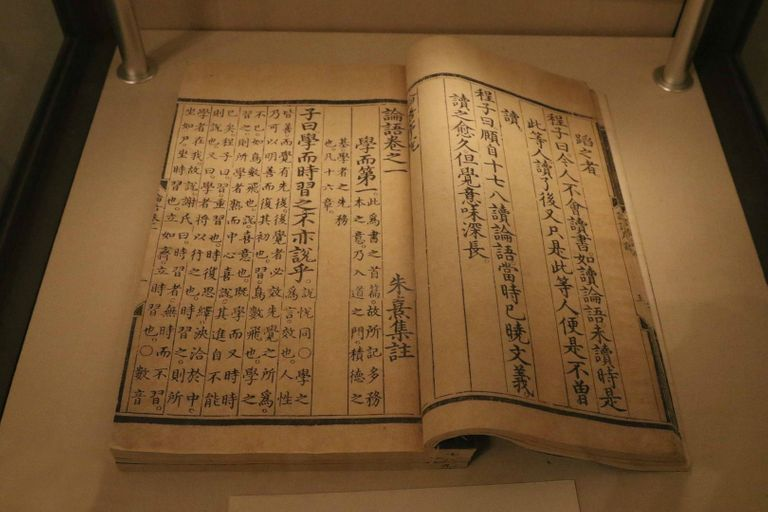 蹈之者
程子曰今人不會讀書如讀論語未讀時是
此等人讀了後又只是此等人便是不曾
讀
程子曰頤自十七八讀論語當時已曉文義
讀之愈久但覺意味深長
論語卷之一
朱熹集註
學而第一
此為書之首篇。故所記多務
本之意。乃入道之門。積德之
基學者之先務
也。凡十六章。
子曰學而時習之不亦說乎
說悅同○學之
為言效也。人性
皆善而覺有先後。後覺者必效先覺之所為。
乃可以明善而復其初也。習。鳥數飛也。學之
不已。如鳥數飛也。說。喜意也。既學而又時時
習之。則所學者熟。而中心喜說。其進自不能
已矣。程子曰。習。重習也。時復思繹。浹洽於中。
則說也。又曰。學者將以行之也。時習之。則所
學者在我。故說。謝氏曰。時習者。無時而不習。
坐如尸。坐時習也。立如齊。立時習也。○數音